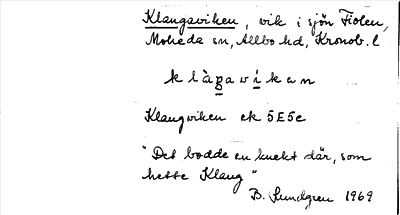 Klangaviken, vik i sjön Fiolen,
Moheda sn, Allbo hd, Kronob. l
k l à ŋ a v i k a n
Klangviken ek 5E5e
"Det bodde en knekt där, som
hette Klang"
B. Sundgren 1969